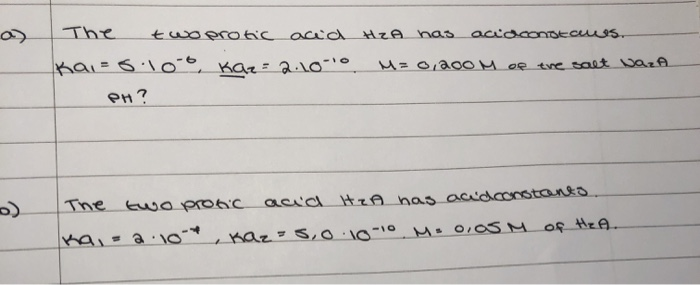 a) The twoprotic acid H2A has acidconstants.
Ka1 = 5·10-6, Ka2 = 2·10-10 M = 0,200M of the salt Na2A
PH?
b) The two protic acid H2A has acidconstants
Ka1 = 2·10-4, Ka2 = 5,0·10-10 M = 0,05 M of H2A.